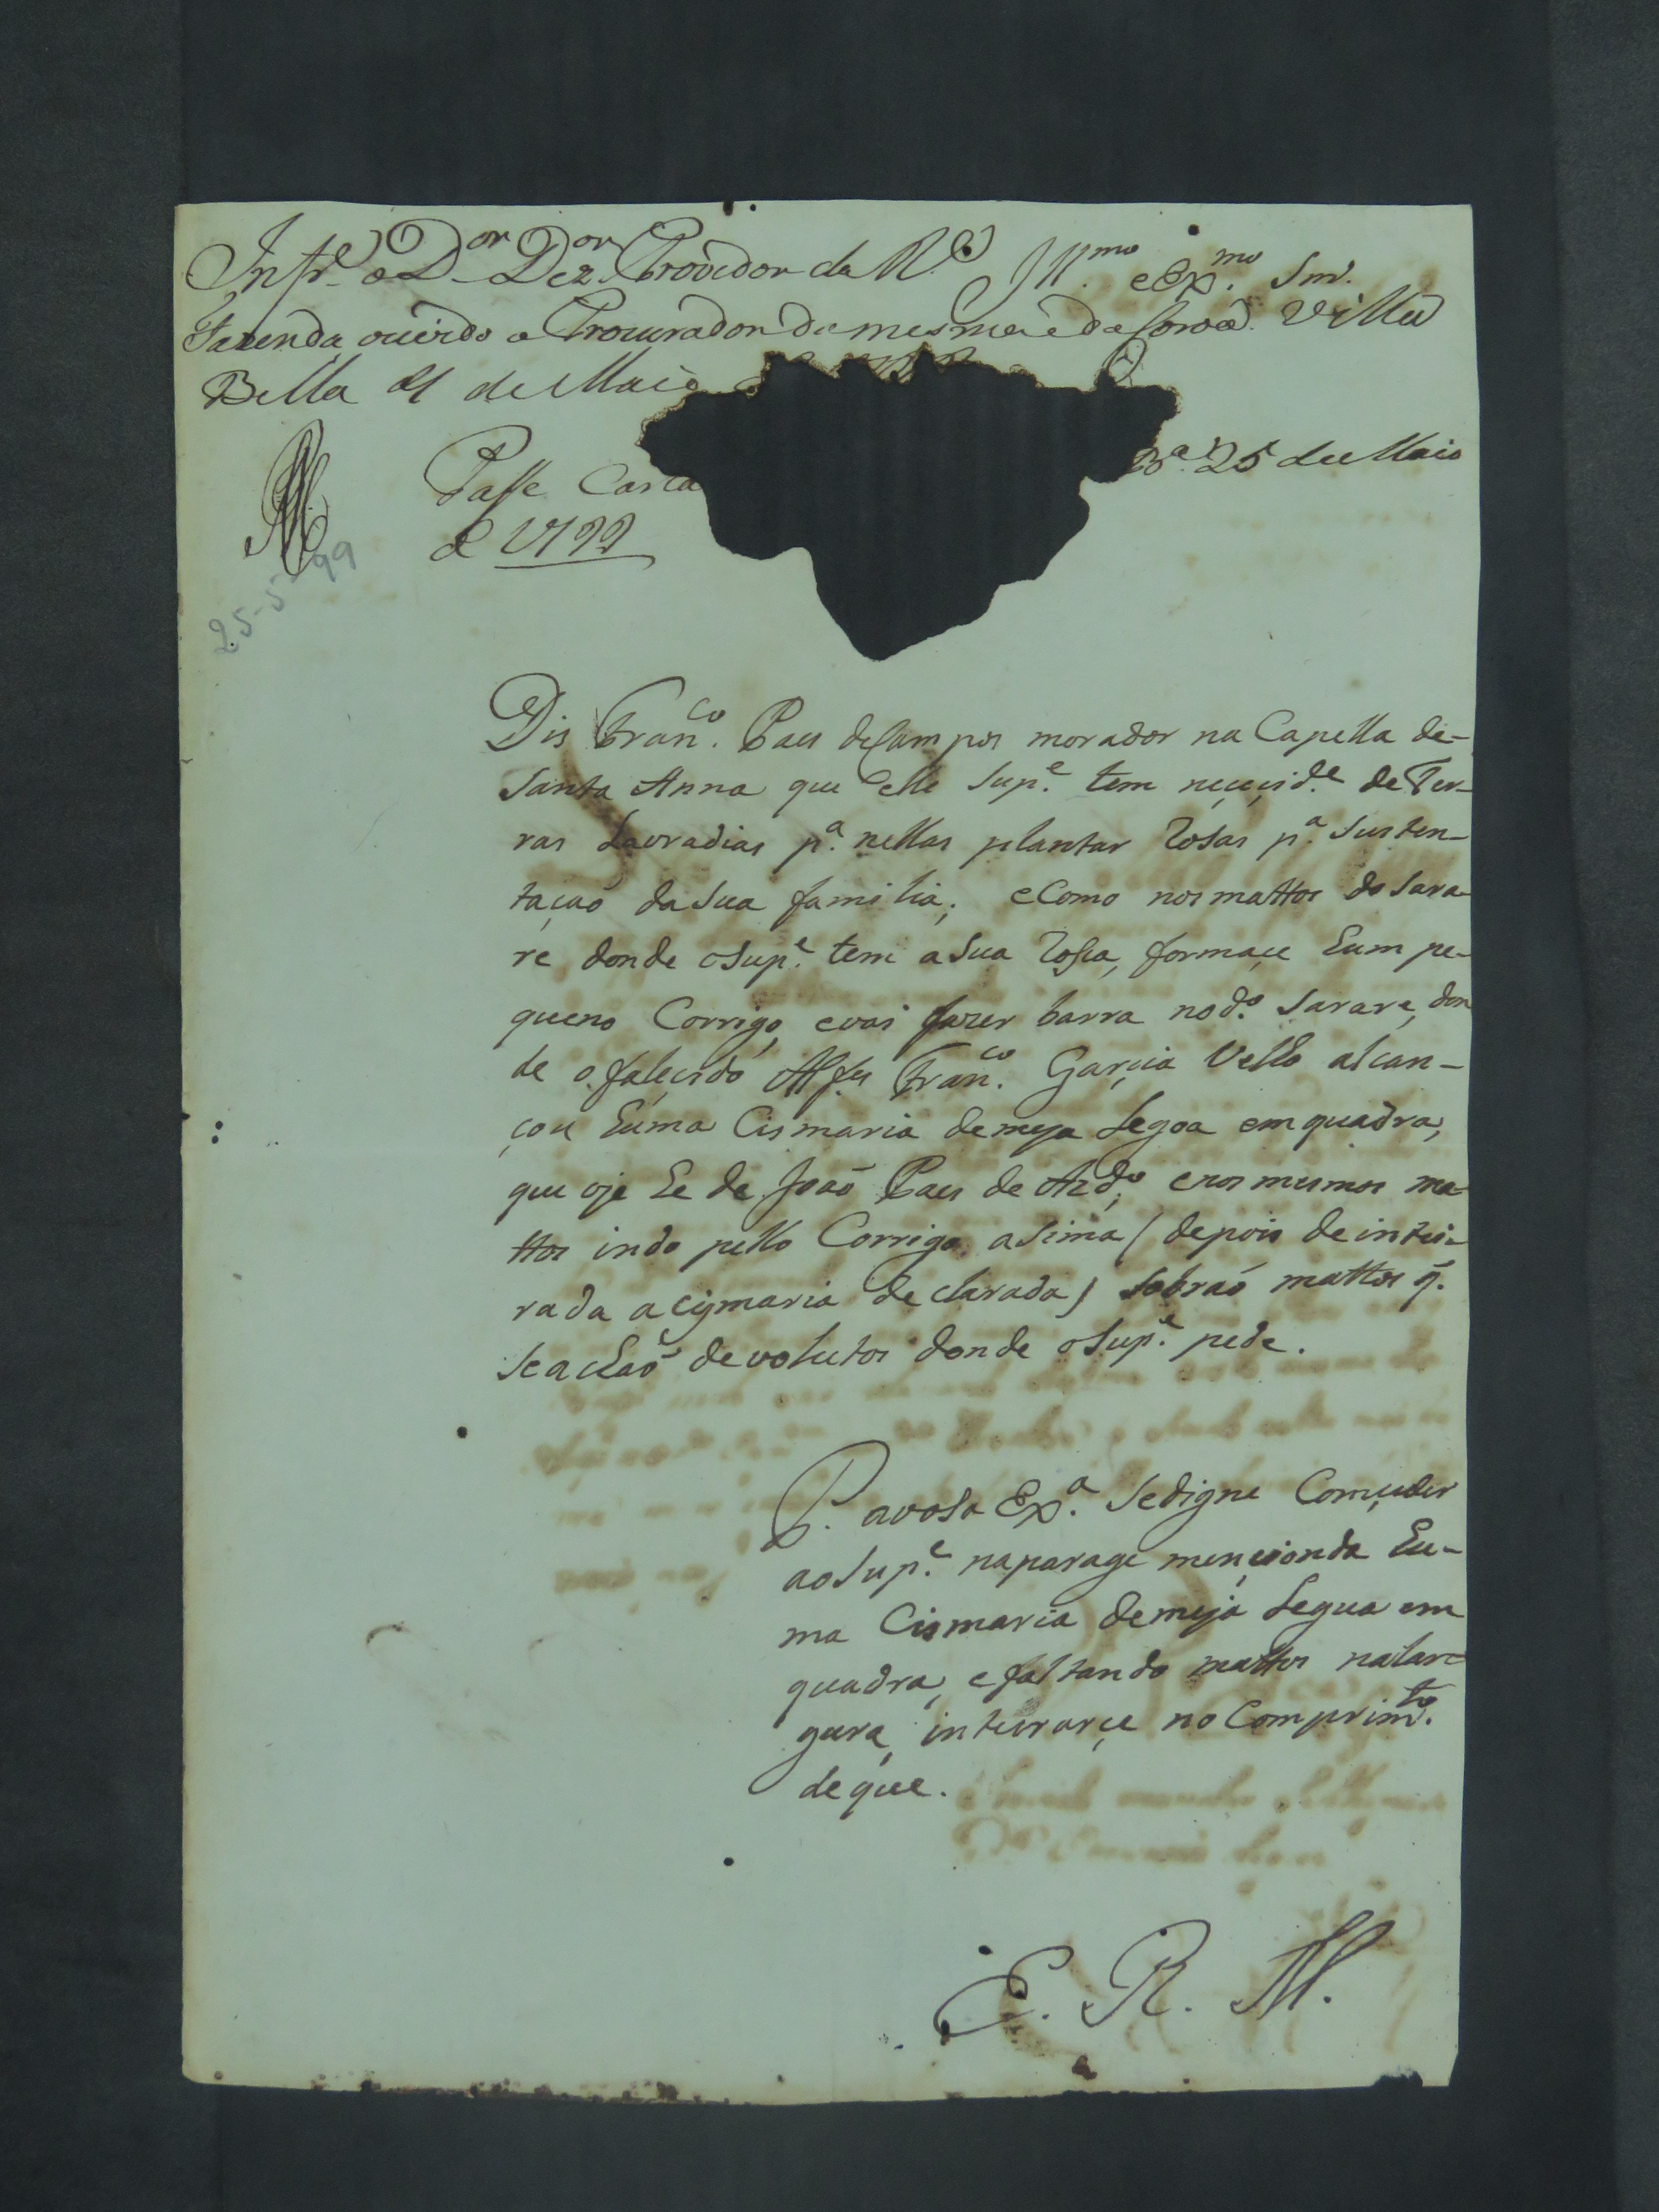 Infr.e o D.or Dez.or Provedor da R.l Ill.mo e Ex.mo Snr.
Fazenda ouvido o Procurador da mesma e da Coroa. Villa
Bella 21 de Maio
Passe Carta B.a 25 de Maio
de 1799
25-5-99
Dis Fran.co Paes de Campos morador na Capella de-
Santa Anna que elle Sup.e tem neçeçid.e de Ter-
ras Lavradias p.a nellas plantar Rosas p.a Susten-
taçaõ da Sua familia; e Como nos mattos do Sara-
re donde o Sup.e tem a Sua Rossa, formaçe hum pe-
queno Corrigo, e vai fazer barra no d.o Sarare, don
de o faleçido Alfes Fran.co Garçia Velho alcan-
çou huma Cismaria de meya Legoa em quadra,
que oje he de Joaõ Paes de Azd.o e nos mesmos ma-
ttos indo pello Corrigo asima ( depois de intei-
rada a cismaria declarada ) Sobraõ mattos q̃.
Se achaõ devolutos donde o Sup.e pede.
P. a vosa Ex.a Se digne Comçeder
ao Sup.e na parage mençionda hu-
ma Cismaria de meja Legua em
quadra, e faltando mattos na lar-
gura, inteirarçe no Comprim.to
de que.
E. R. M.